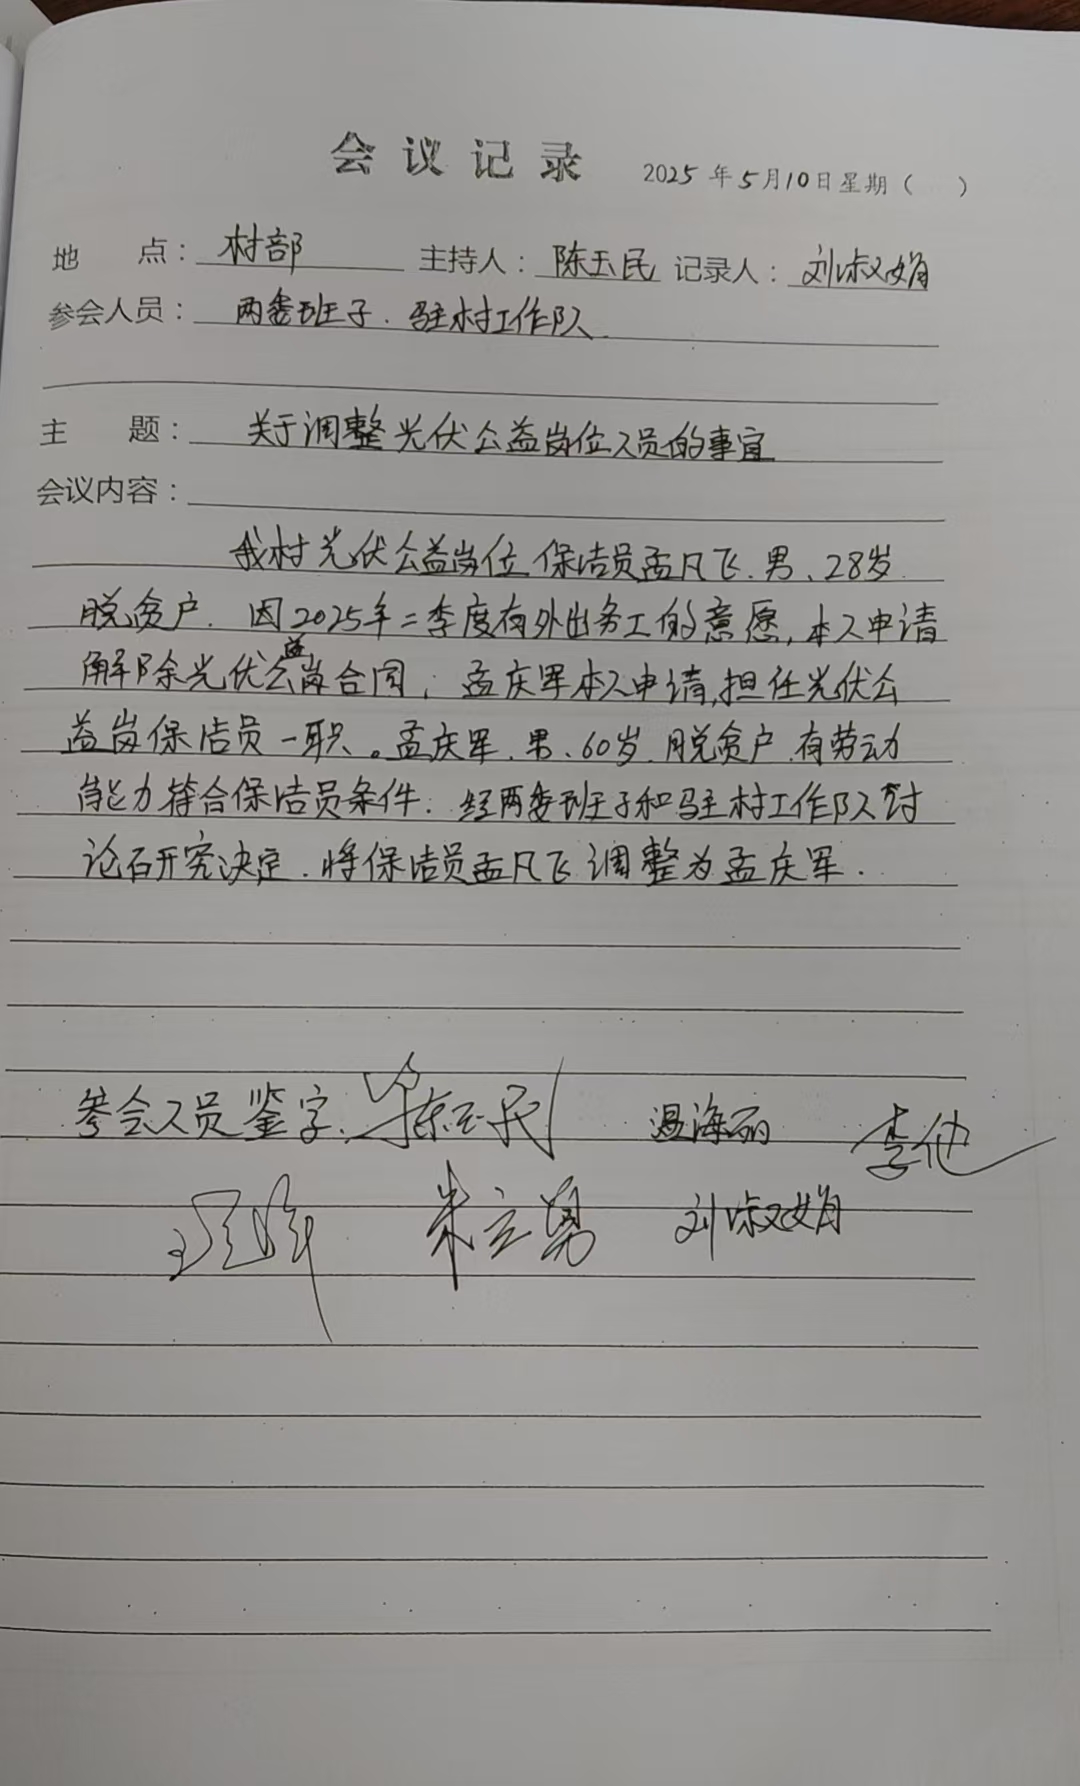 会议记录 2025年5月10日星期( )
地 点：村部 主持人：陈玉民 记录人：刘淑娟
参会人员：两委班子.驻村工作队
主 题：关于调整光伏公益岗位人员的事宜
会议内容：
我村光伏公益岗位保洁员孟凡飞.男、28岁.
脱贫户.因2025年二季度有外出务工的意愿,本人申请
解除光伏公益岗合同;孟庆军本人申请,担任光伏公
益岗保洁员一职。孟庆军.男、60岁.脱贫户.有劳动
能力符合保洁员条件.经两委班子和驻村工作队讨
论研究决定.将保洁员孟凡飞调整为孟庆军.
参会人员鉴字: 陈玉民 温海丽 李他
朱立勇 刘淑娟